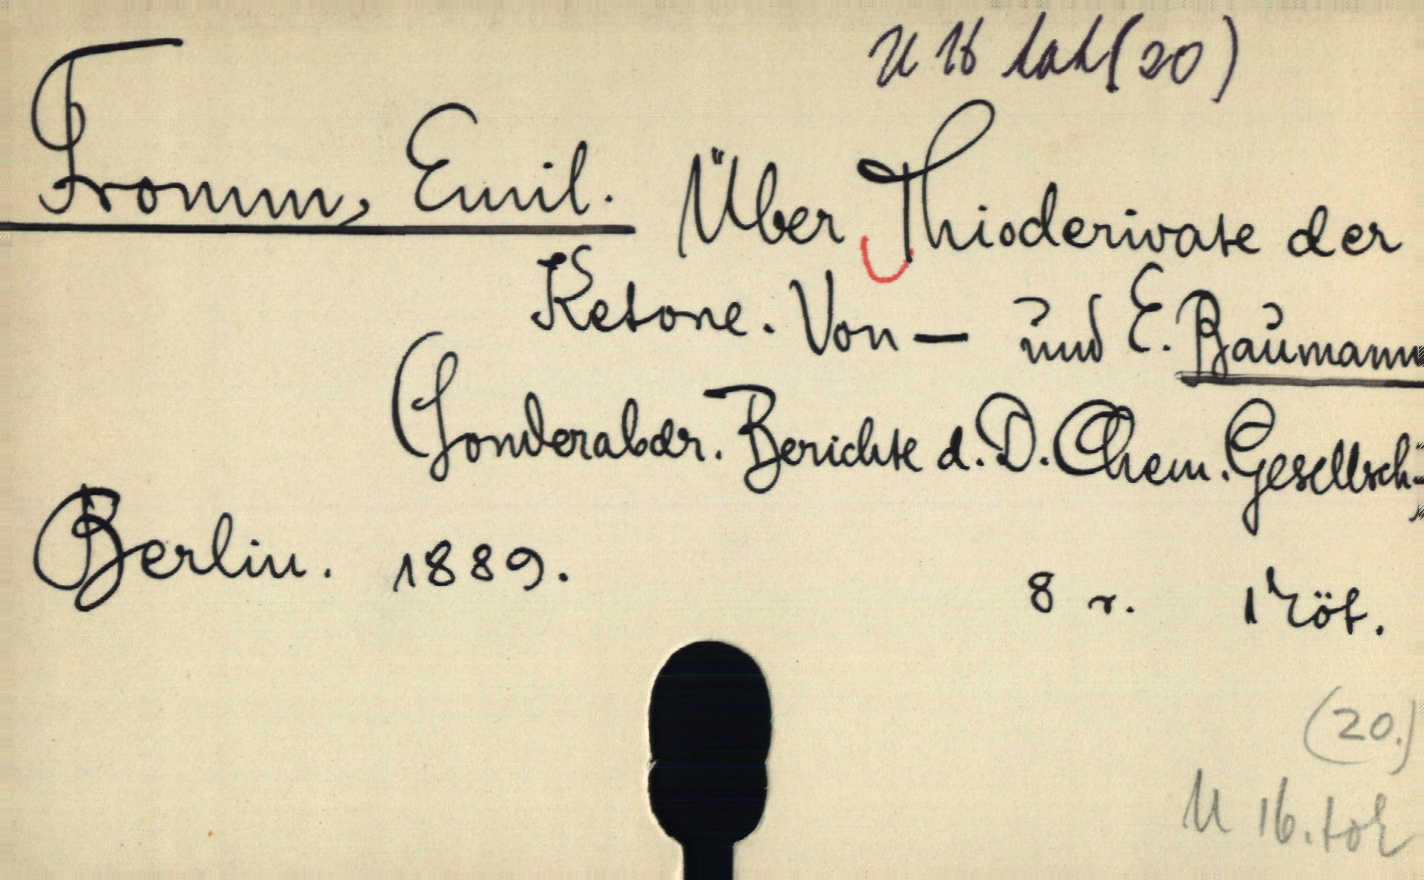 U 16 lah (20)
Fromm, Emil. Über Thioderivate der
Ketone. Von — und E. Baumann
(Sonderabdr. Berichte d. D. Chem. Gesellsch.)
Berlin. 1889. 8 r. 1 köt.
(20.)
U 16.